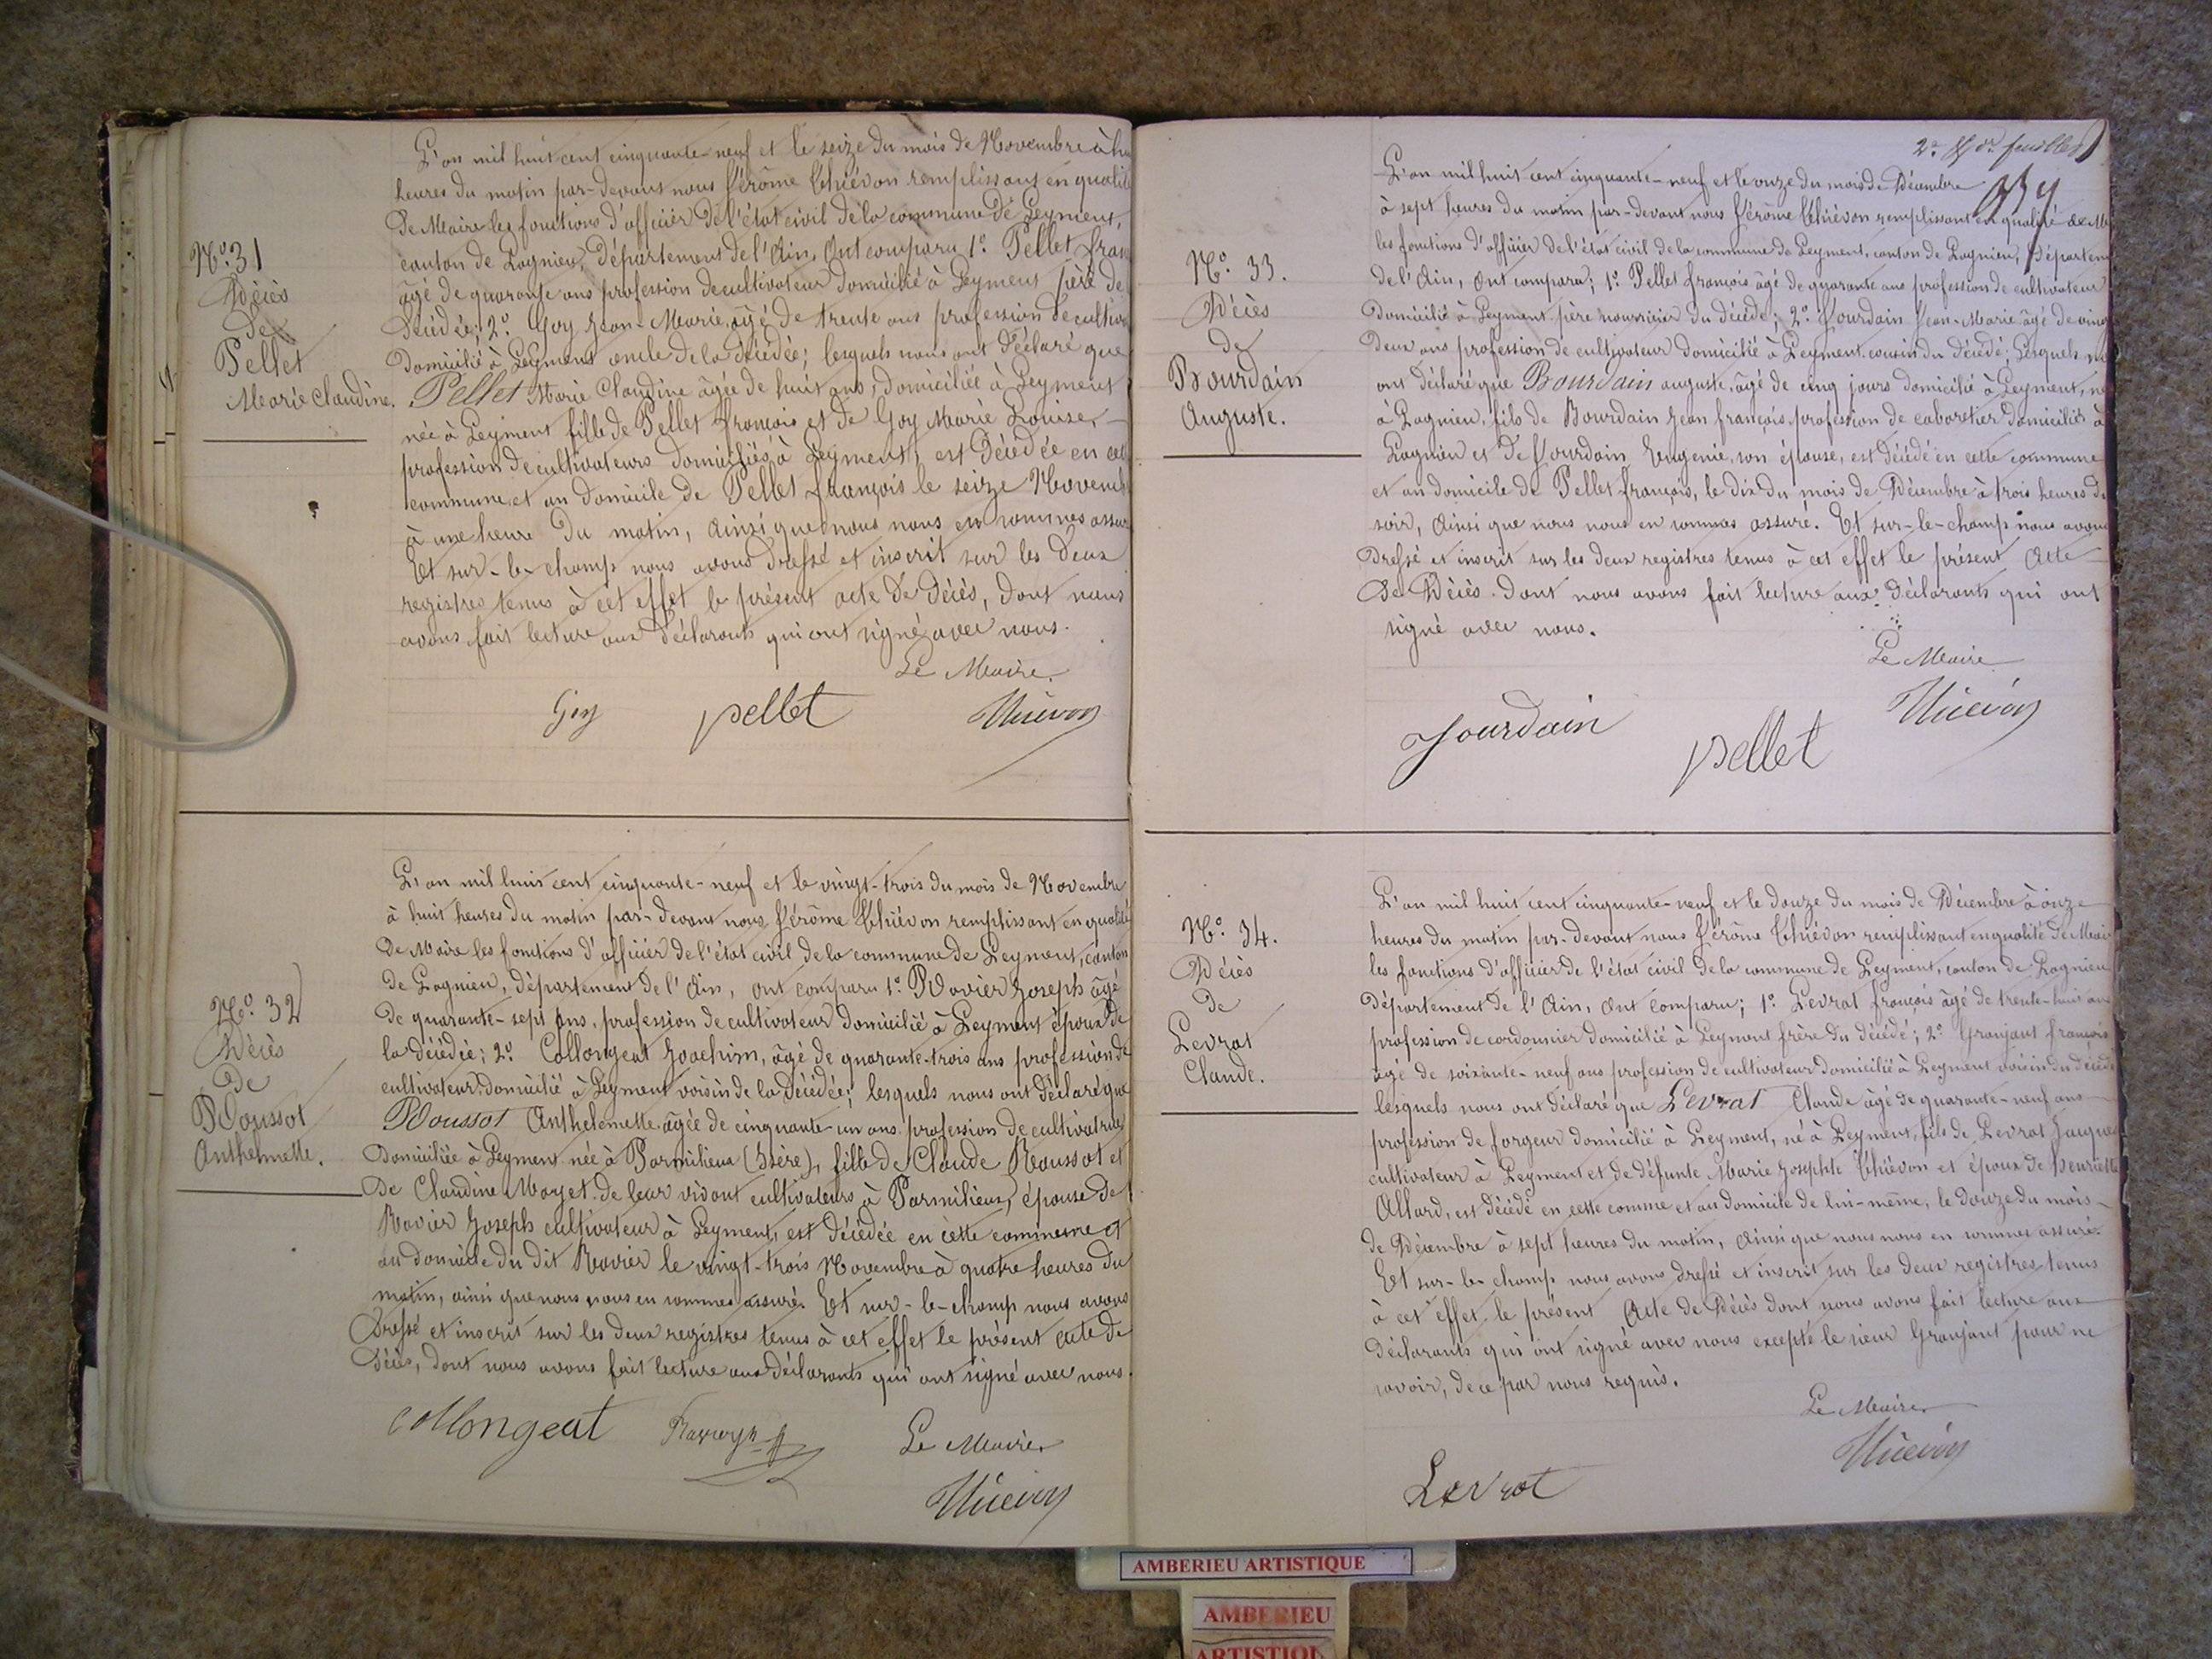 N.º 31
Décès
de
Pellet
Marie Claudine.
L'an mil huit cent cinquante-neuf et le seize du mois de Novembre à
heures du matin par-devant nous Jérôme Thiévon remplissant en qualité
de Maire les fonctions d'officier de l'état civil de la commune de Leyment,
canton de Lagnieu, département de l'Ain, Ont comparu 1.º Pellet
âgé de quarante ans profession de cultivateur domicilié à Leyment père de
décédée; 2.º Goy Jean-Marie, âgé de trente ans profession de
domicilié à Leyment oncle de la décédée; lesquels nous ont déclaré que
Pellet Marie Claudine âgée de huit ans, domiciliée à Leyment
née à Leyment fille de Pellet françois et de Goy Marie Louise,
profession de cultivateurs domiciliés à Leyment, est décédée en
commune et au domicile de Pellet françois le seize
à une heure du matin, Ainsi que nous nous en sommes
Et sur-le-champ nous avons dressé et inscrit sur les deux
registres tenus à cet effet le présent acte de décès, dont nous
avons fait lecture aux déclarants qui ont signé avec nous.
Le Maire.
Goy pellet Thiévon
N.º 32
Décès
de
Roussot
Anthelmette.
L'an mil huit cent cinquante-neuf et le vingt-trois du mois de Novembre
à huit heures du matin par-devant nous Jérôme Thiévon remplissant en qualité
de Maire les fonctions d'officier de l'état civil de la commune de Leyment, canton
de Lagnieu, département de l'Ain, ont comparu 1.º Ravier Joseph âgé
de quarante-sept ans, profession de cultivateur domicilié à Leyment époux de
la décédée; 2.º Collongeat Joachim, âgé de quarante-trois ans profession de
cultivateur domicilié à Leyment voisin de la décédée; lesquels nous ont déclaré que
Roussot Anthelmette âgée de cinquante-un ans profession de cultivatrice
domiciliée à Leyment née à Parmilieux (Isère), fille de Claude Roussot et
de Claudine Mayet de leur vivant cultivateurs à Parmilieux, épouse de
Ravier Joseph cultivateur à Leyment, est décédée en cette commune et
au domicile du dit Ravier le vingt-trois Novembre à quatre heures du
matin, ainsi que nous nous en sommes assuré. Et sur-le-champ nous avons
dressé et inscrit sur les deux registres tenus à cet effet le présent acte de
décès, dont nous avons fait lecture aux déclarants qui ont signé avec nous.
collongeat Le Maire
Thiévon
2.e & d.r feuillet
N.º 33.
Décès
de
Bourdain
Auguste.
L'an mil huit cent cinquante-neuf et le onze du mois de Décembre
à sept heures du matin par-devant nous Jérôme Thiévon remplissant en qualité de
les fonctions d'officier de l'état civil de la commune de Leyment, canton de Lagnieu,
de l'Ain, Ont comparu; 1.º Pellet françois âgé de quarante ans profession de cultivateur
domicilié à Leyment père nourricier du décédé; 2.º Jourdain Jean-Marie âgé de
deux ans profession de cultivateur domicilié à Leyment cousin du décédé; Lesquels
ont déclaré que Bourdain auguste, âgé de cinq jours domicilié à Leyment, né
à Lagnieu, fils de Bourdain Jean françois profession de cabaretier domicilié à
Lagnieu et de Jourdain Eugénie, son épouse, est décédé en cette commune
et au domicile de Pellet françois, le dix du mois de Décembre à trois heures du
soir, Ainsi que nous nous en sommes assuré. Et sur-le-champ nous avons
dressé et inscrit sur les deux registres tenus à cet effet le présent Acte
de Décès dont nous avons fait lecture aux déclarants qui ont
signé avec nous.
Le Maire
Jourdain pellet Thiévon
N.º 34.
Décès
de
Levrat
Claude.
L'an mil huit cent cinquante-neuf et le douze du mois de Décembre à onze
heures du matin par-devant nous Jérôme Thiévon remplissant en qualité de Maire
les fonctions d'officier de l'état civil de la commune de Leyment, canton de Lagnieu
département de l'Ain, Ont comparu; 1.º Levrat françois âgé de trente-huit ans
profession de cordonnier domicilié à Leyment frère du décédé; 2.º Granjant françois
âgé de soixante-neuf ans profession de cultivateur domicilié à Leyment voisin du décédé
lesquels nous ont déclaré que Levrat Claude âgé de quarante-neuf ans
profession de forgeur domicilié à Leyment, né à Leyment, fils de Levrat Jacques
cultivateur à Leyment et de défunte Marie Josephte Thiévon et époux de henriette
Allard, est décédé en cette comme et au domicile de lui-même, le douze du mois
de Décembre à sept heures du matin, Ainsi que nous nous en sommes assuré.
Et sur-le-champ nous avons dressé et inscrit sur les deux registres tenus
à cet effet le présent Acte de Décès dont nous avons fait lecture aux
déclarants qui ont signé avec nous excepté le sieur Granjant pour ne
savoir, de ce par nous requis.
Le Maire
Levrat Thiévon
AMBERIEU ARTISTIQUE
AMBERIEU
ARTISTIQU